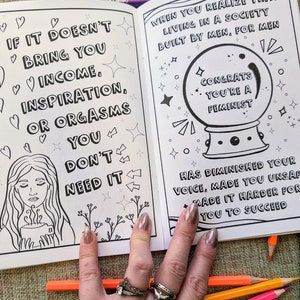 IF IT DOESN'T
BRING YOU
INCOME,
INSPIRATION,
OR ORGASMS
YOU
DON'T
NEED IT
WHEN YOU REALIZE
LIVING IN A SOCIETY
BUILT BY MEN, FOR MEN
CONGRATS
YOU'RE A
FEMINIST
HAS DIMINISHED YOUR
VOICE, MADE YOU UNSAFE
MADE IT HARDER FOR
YOU TO SUCCEED